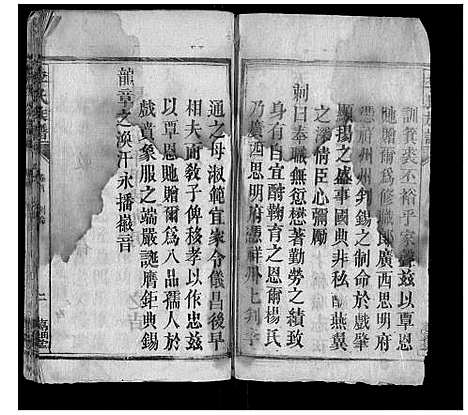 訓箕裘不裕乎家聲茲以覃恩
馳贈爾為修職郎廣西思明府
憑祥州州判錫之制命於戲肇
顯揚之盛事國典非私酬燕翼
之深情臣心彌勵
制曰奉職無愆懋著勤勞之績致
身有自宜酬鞠育之恩爾楊氏
乃廣西思明府憑祥州州判
通之母淑範宜家令儀昌後早
相夫而教子俾移孝以作忠茲
以覃恩馳贈爾為八品孺人於
戲賁象服之端嚴誕膺鉅典錫
龍章之渙汗永播徽音
氏族譜
二